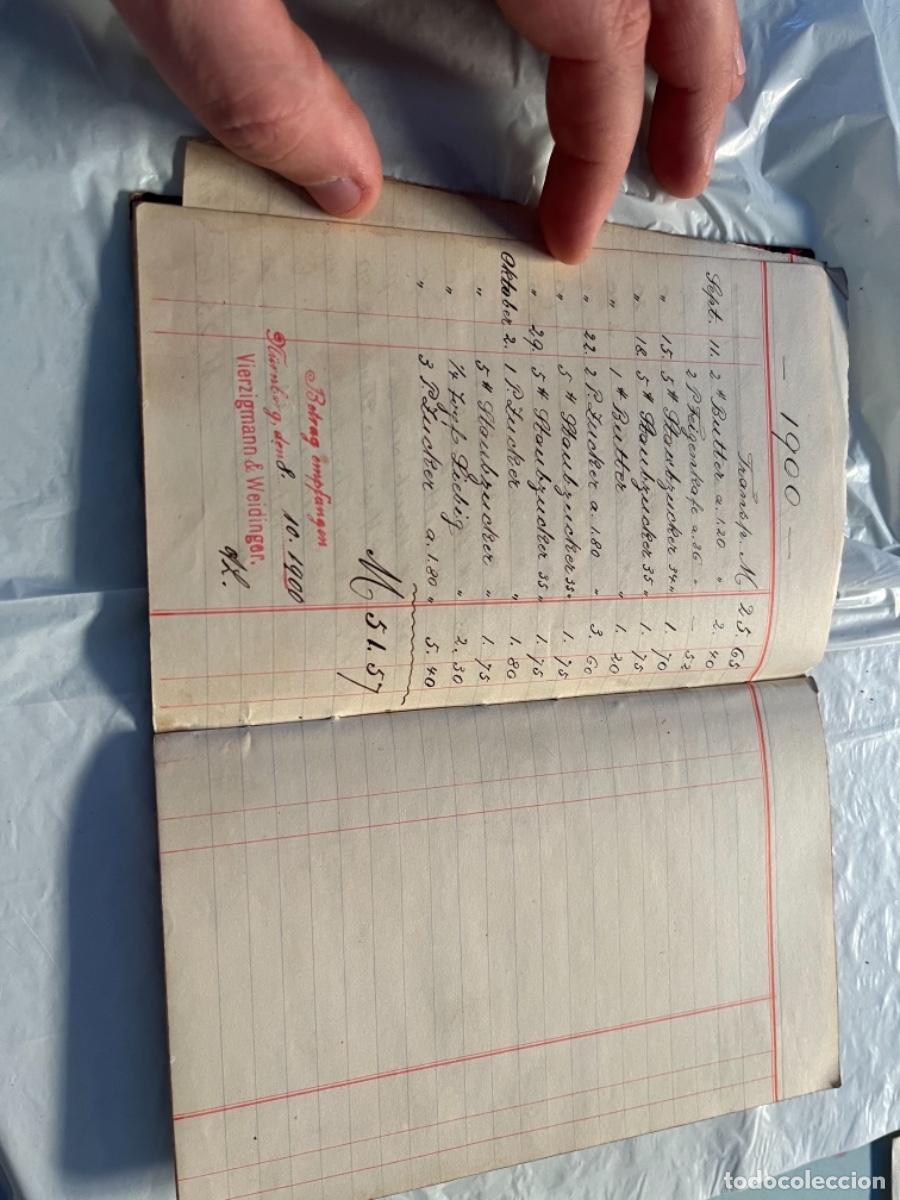 — 1900 —
Transp. M 25.65
Sept. 11. 2 ℔ Butter a. 1.20 " 2.40
2 P Feigenkafe a. 26 " — 52
" 15. 5 ℔ Staubzucker 34 " 1.70
" 18. 5 ℔ Staubzucker 35 " 1.75
" 1 ℔ Butter " 1.20
" 22. 2 P. Zucker a. 1.80 " 3.60
" 5 ℔ Staubzucker 35 " 1.75
" 29. 5 ℔ Staubzucker 35 " 1.75
Oktober 2. 1 P. Zucker " 1.80
" 5 ℔ Staubzucker " 1.75
" 1/4 Liebig " 2.30
" 3 P. Zucker a. 1.80 " 5.40
M 51.57
Betrag empfangen
Nürnberg, den 8. 10. 1900
Vierzigmann & Weidinger.
todocoleccion